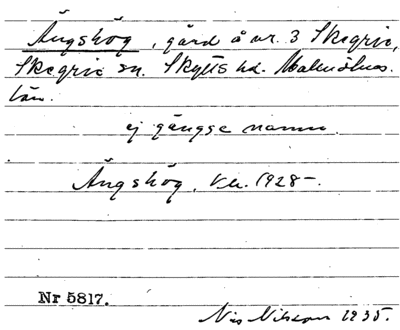 Ängshög, gård å nr. 3 Skegrie,
Skegrie sn. Skytts hd. Malmöhus
län.
ej gängse namn.
Ängshög, 1928–.
Nr 5817.
Nils Nilsson 1935.